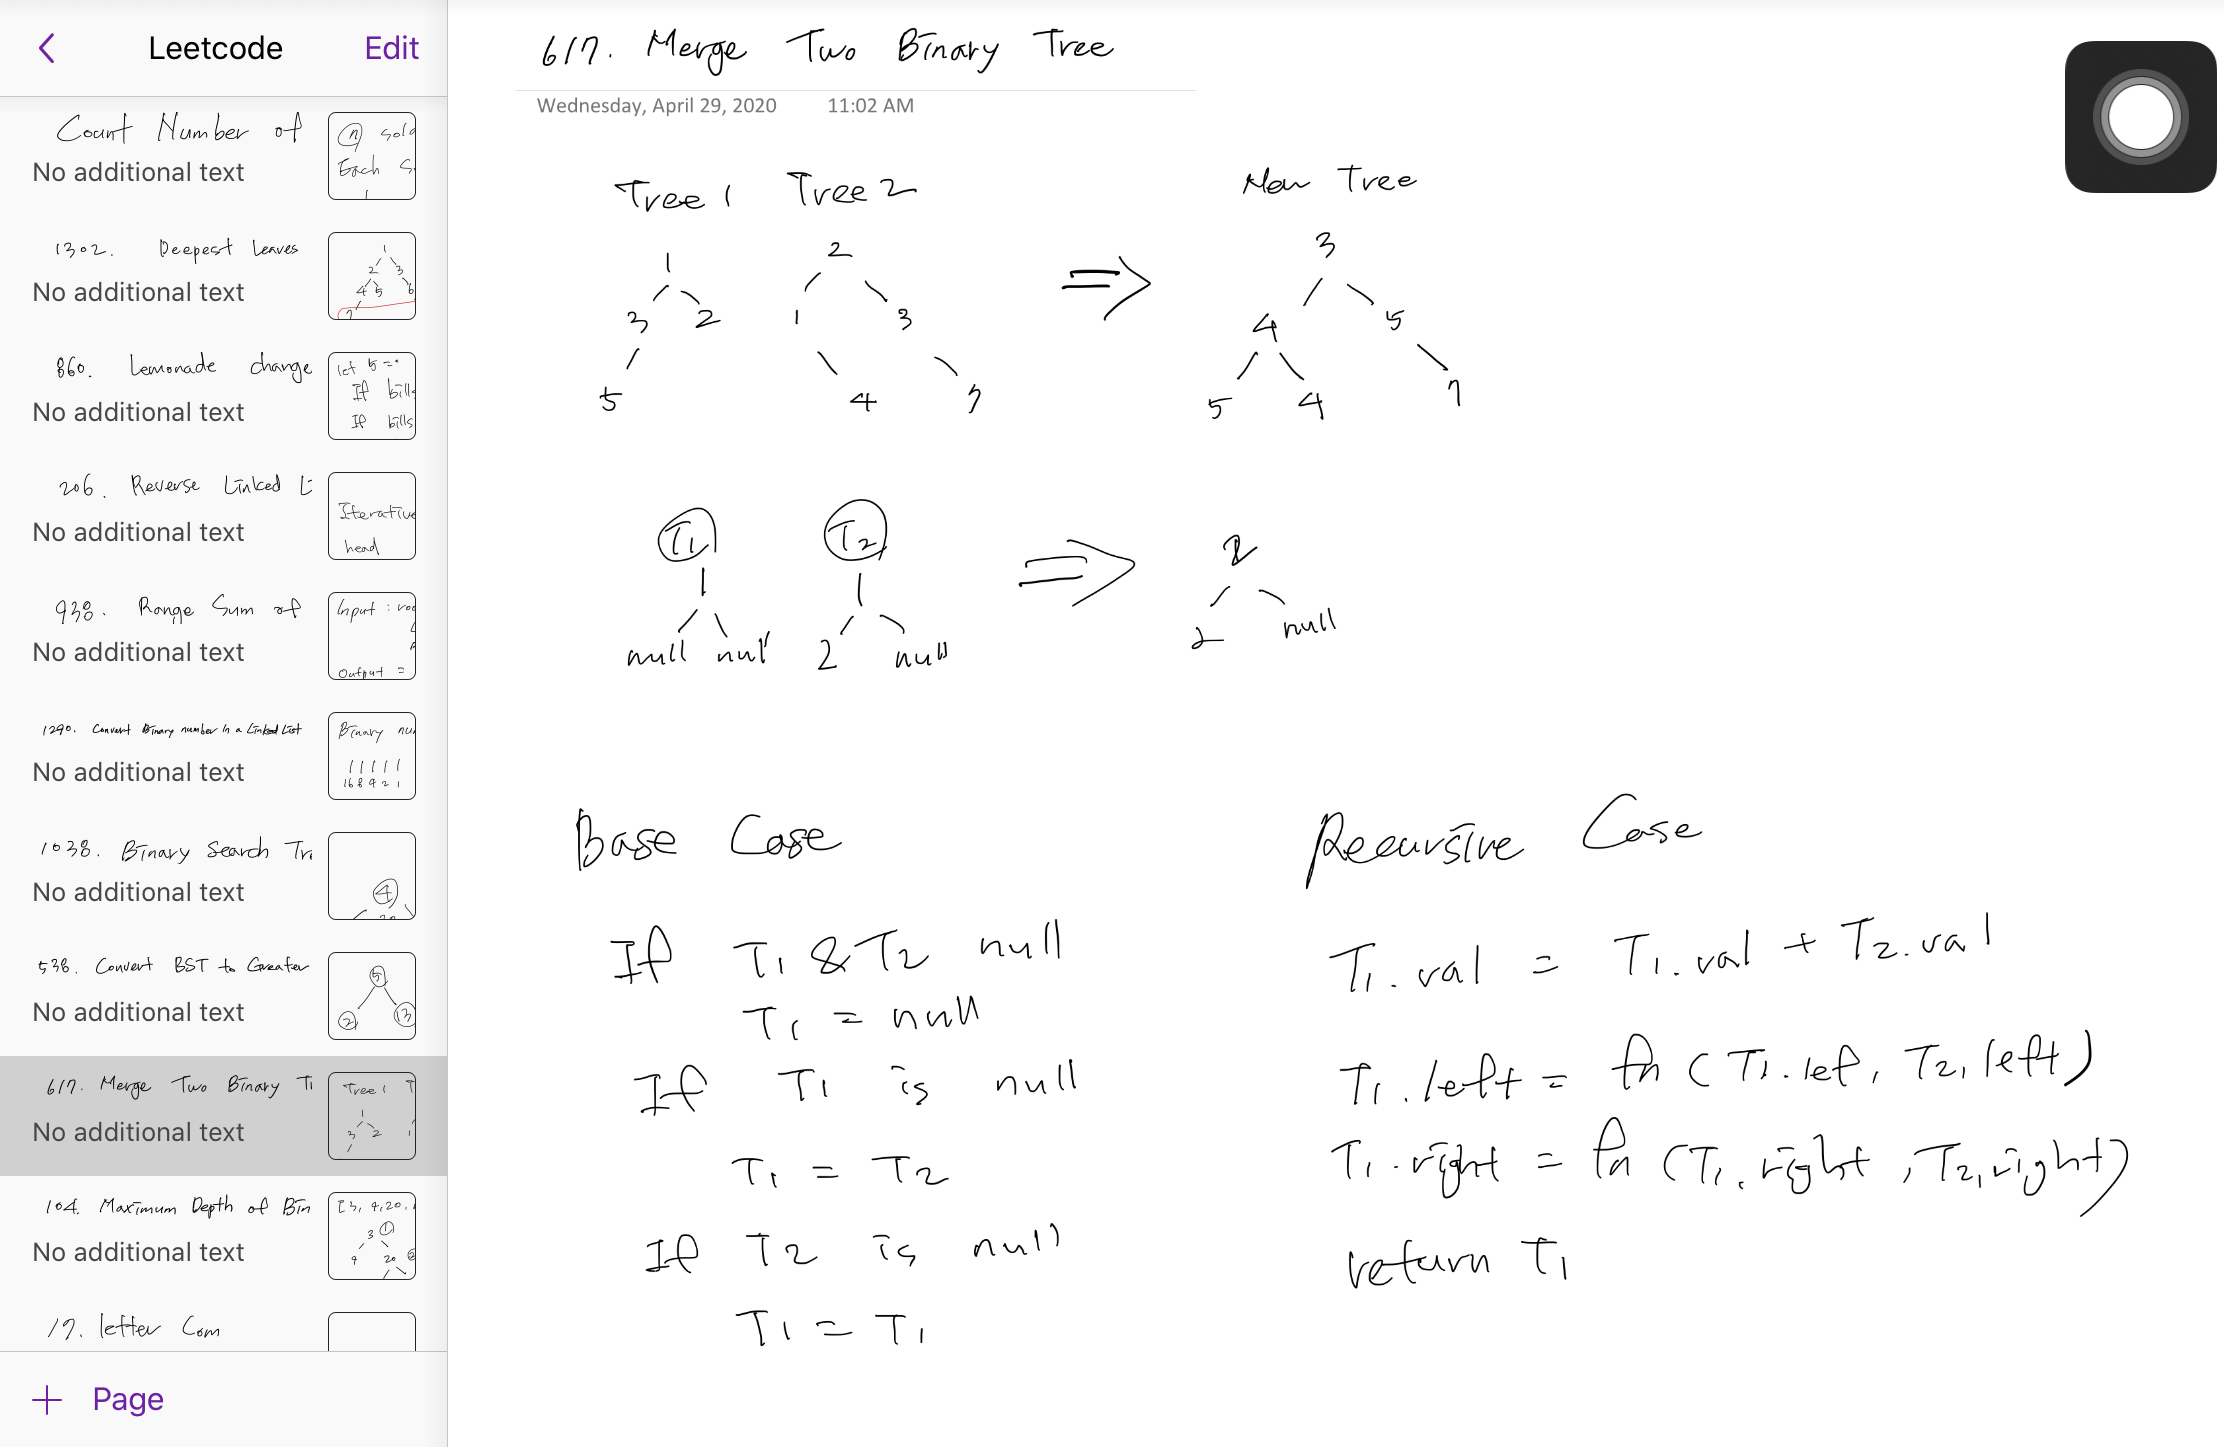 Leetcode
Edit
Count Number of
No additional text
n sold
Each S
1302. Deepest Leaves
No additional text
1
2 3
4 5 6
7
860. Lemonade change
No additional text
let 5 =
If bills
If bills
206. Reverse Linked Li
No additional text
Iterative
head
938. Range Sum of
No additional text
Input : roo
Output =
1290. Convert Binary number in a Linked List
No additional text
Binary nu
1 1 1 1 1
16 8 4 2 1
1038. Binary Search Tr
No additional text
4
538. Convert BST to Greater
No additional text
5
2 13
617. Merge Two Binary T
No additional text
Tree 1 T
1
3 2
104. Maximum Depth of Bin
No additional text
[3, 9, 20,
3 1
9 20 2
17. letter Com
Page
617. Merge Two Binary Tree
Wednesday, April 29, 2020 11:02 AM
Tree 1 Tree 2 New Tree
1 2 ⇒ 3
3 2 1 3 4 5
5 4 7 5 4 7
T1 T2 ⇒ 2
1 1
null null 2 null 2 null
Base Case
If T1 & T2 null
T1 = null
If T1 is null
T1 = T2
If T2 is null
T1 = T1
Recursive Case
T1.val = T1.val + T2.val
T1.left = fn (T1.lef, T2,left)
T1.right = fn (T1.right, T2,right)
return T1